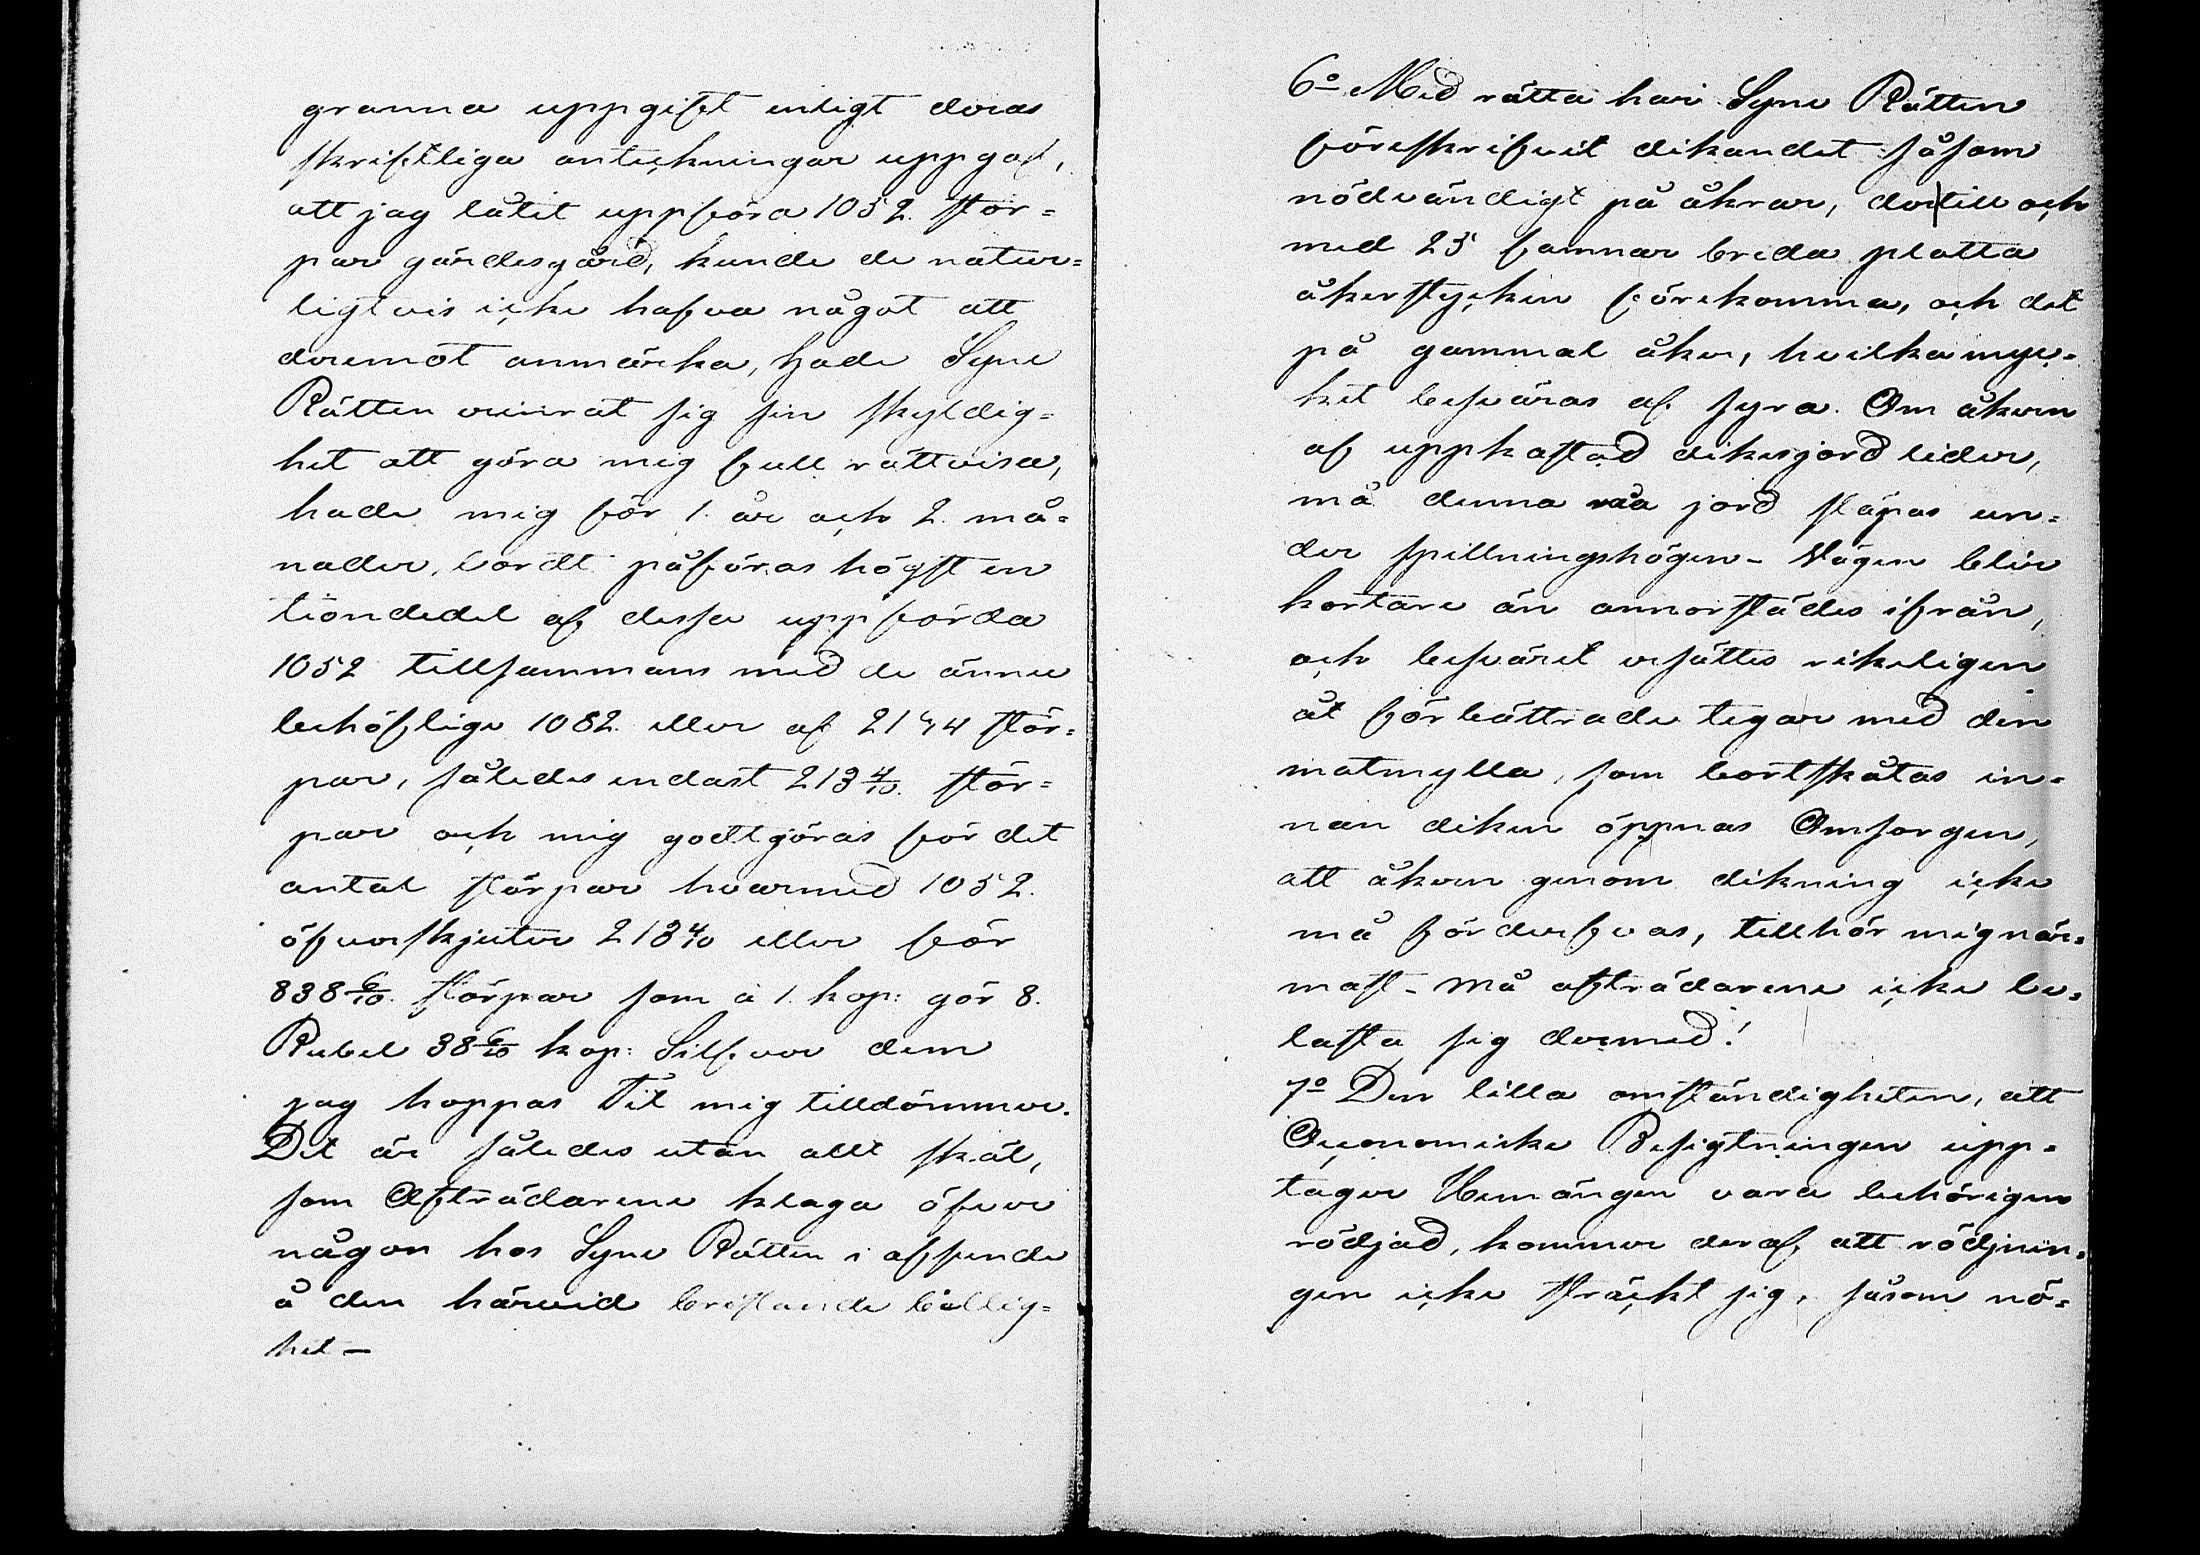 granna uppgift enligt deras
skriftliga anteckningar uppgaf,
att jag låtit uppföra 1052. stör=
par gärdesgård, kunde de natur=
ligtvis icke hafva något att
deremot anmärka, Hade Syne
Rätten erinrat sig sin skyldig=
het att göra mig full rättvisa,
hade mig för 1. år och 2. må=
nader, bordt påföras högst en
tiondedel af dessa uppförda
1052 tillsammans med de ännu
behöflige 1082. eller af 2134 stör=
par, således endast 213 4/10. stör=
par och mig godtgöras för det
antal störpar hvarmed 1052.
öfverskjuter 213 4/10 eller för
838 6/10. störpar som à 1. kop: gör 8.
Rubel 38 6/10 kop: Silfver dem
jag hoppas Tit mig tilldömmer.
Det är således utan allt skäl,
som Afträdarene klaga öfver
någon hos Syne Rätten i afseende
å den härvid bristande billig=
het –
6º Med rätta har Syne Rätten
föreskrifvit dikandet såsom
nödvändigt på åkrar, der till och
med 25 famnar breda platta
åkerstycken förekomma, och det
på gammal åker, hvilka myc=
ket besväras af syra. Om åkern
af uppkastad dikesjord lider,
må denna råa jord släpas un=
der spillningshögen – Vägen blir
kortare än annorstädes ifrån,
och besväret ersättes rikeligen
åt förbättrade tegar med den
matmylla, som bortskåtas in=
nan diken öppnas Omsorgen,
att åkern genom dikning icke
må förderfvas, tillhör mig när=
mast – Må afträdarene icke be=
lasta sig dermed!
7º Den lilla omständigheten, att
Oeconomiske Besigtningen upp=
tager Hemängen vara behörigen
rödjad, kommer deraf, att rödjnin=
gen icke sträckt sig, såsom nö=